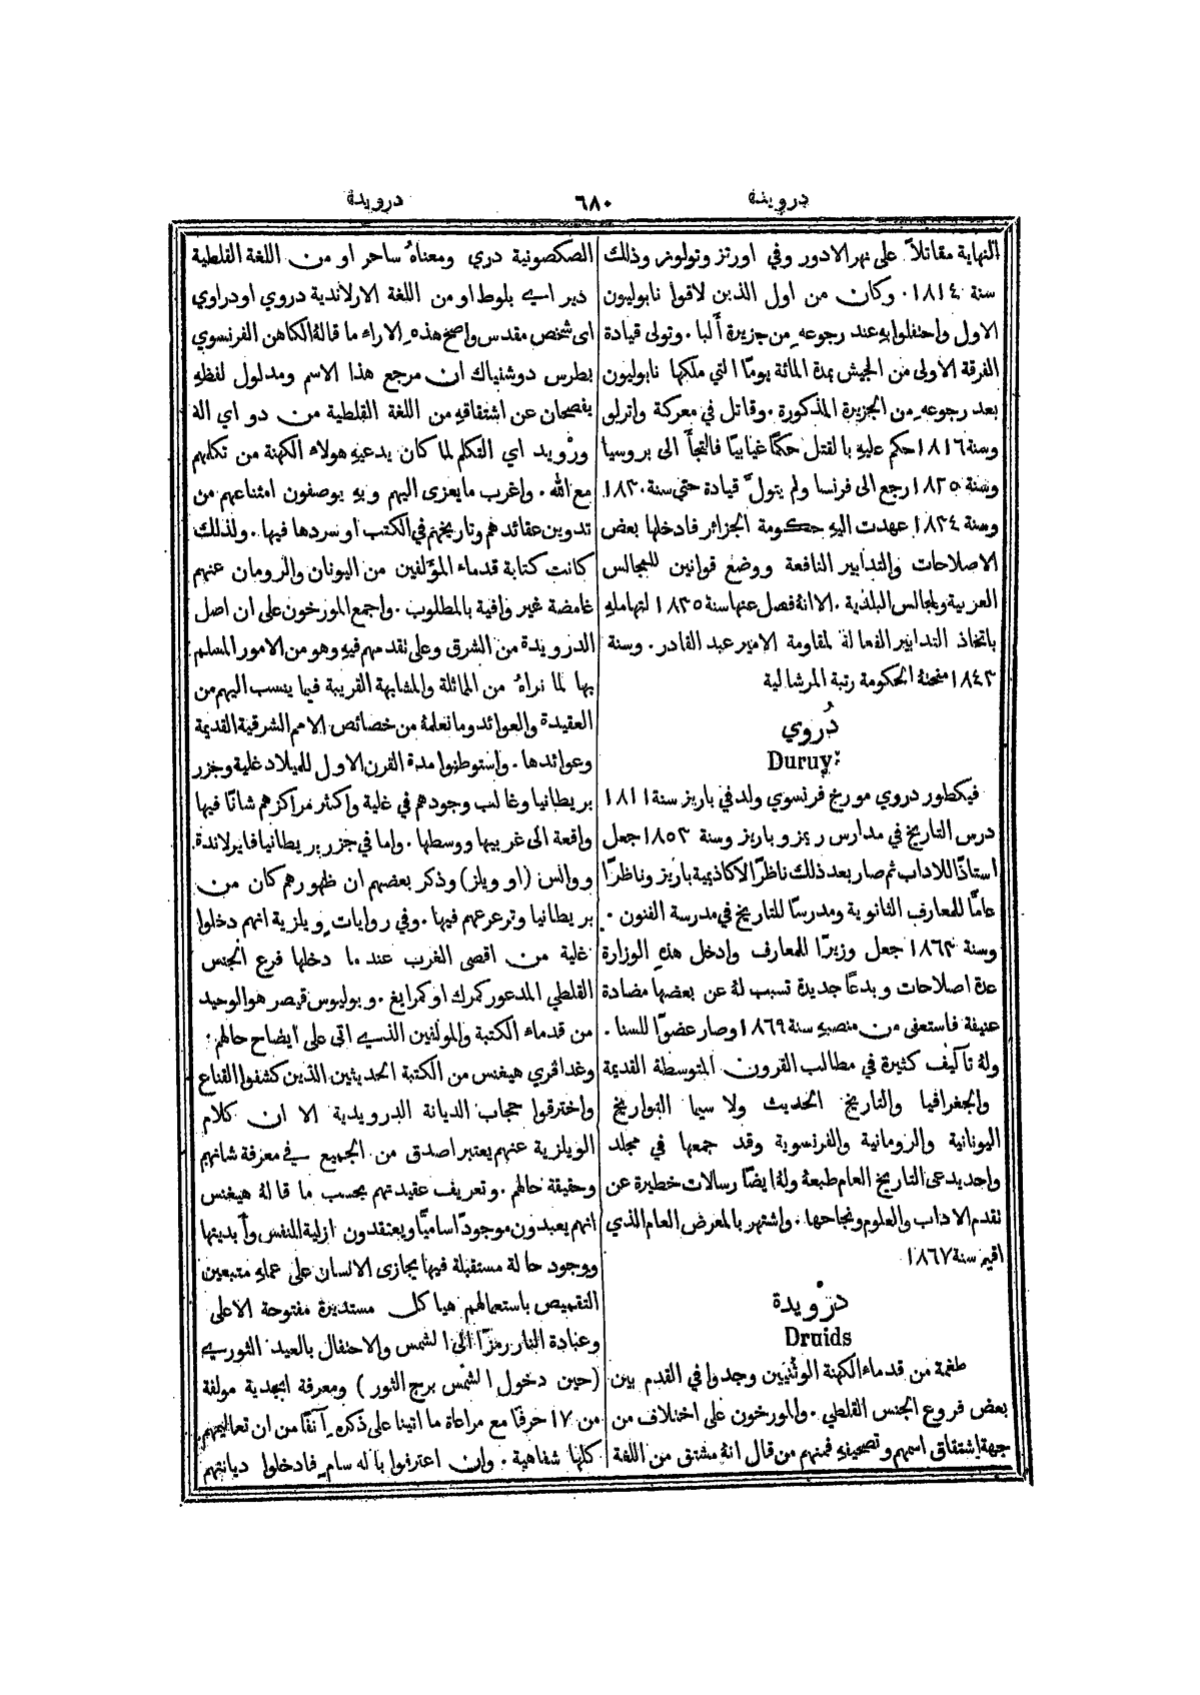 دروينة ٦٨٠ درويدة
النهاية مقاتلاً على نهر الادور وفي اورتز وتولوز وذلك
سنة ١٨١٤. وكان من اول الذين لاقوا نابوليون
الاول واحتفلوا به عند رجوعه من جزيرة ألبا. وتولى قيادة
الفرقة الاولى من الجيش بمدة المائة يوماً التي ملكها نابوليون
بعد رجوعه من الجزيرة المذكورة. وقاتل في معركة واترلو
وسنة ١٨١٦ حكم عليه بالقتل حكماً غيابيّاً فالتجأ الى بروسيا
وسنة ١٨٢٥ رجع الى فرنسا ولم يتولَّ قيادة حتى سنة ١٨٣٠
وسنة ١٨٣٤ عهدت اليه حكومة الجزائر فادخلها بعض
الاصلاحات والتدابير النافعة ووضع قوانين للمجالس
العربية ولمجالس البلدية. الا انهُ فصل عنها سنة ١٨٣٥ لتهامله
باتخاذ التدابير الفعالة لمقاومة الامير عبد القادر. وسنة
١٨٤٣ منحتهُ الحكومة رتبة المرشالية
دُروي
Duruy
فيكطور دروي مورخ فرنسوي ولد في باريز سنة ١٨١١
درس التاريخ في مدارس ريمز وباريز وسنة ١٨٥٣ جعل
استاذًا للاداب ثم صار بعد ذلك ناظرًا لاكاذيمية باريز وناظرًا
عامًّا للمعارف الثانوية ومدرسًا للتاريخ في مدرسة الفنون.
وسنة ١٨٦٣ جعل وزيرًا للمعارف وادخل هذه الوزارة
عدة اصلاحات وبدعًا جديدة تسبب لهُ عن بعضها مضادة
عنيفة فاستعفى من منصبه سنة ١٨٦٩ وصار عضوًا للسنا.
ولهُ تآليف كثيرة في مطالب القرون المتوسطة القديمة
والجغرافيا والتاريخ الحديث ولا سيما التواريخ
اليونانية والرومانية والفرنسوية وقد جمعها في مجلد
واحد يدعى التاريخ العام طبعهُ ولهُ ايضًا رسالات خطيرة عن
تقدم الاداب والعلوم ونجاحها. واشتهر بالمعرض العام الذي
اقيم سنة ١٨٦٧
درْويدة
Druids
طغمة من قدماء الكهنة الوثنيين وجدوا في القدم بين
بعض فروع الجنس القلطي. والمورخون على اختلاف من
جهة اشتقاق اسمهم وتصحيفه فمنهم من قال انهُ مشتق من اللغة
الصكصونية دري ومعناهُ ساحر او من اللغة القلطية
دير اي بلوط او من اللغة الارلاندية دروي او دراوي
اى شخص مقدس واصح هذه الاراء ما قالهُ الكاهن الفرنسوي
بطرس دوشنياك ان مرجع هذا الاسم ومدلول لفظه
يفصحان عن اشتقاقه من اللغة القلطية من دو اي اله
ورْويد اي التكلم لما كان يدعيه هولاء الكهنة من تكلمهم
مع الله. واغرب ما يعزى اليهم وبه يوصفون امتناعهم من
تدوين عقائدهم وتاريخهم في الكتب او سردها فيها. ولذلك
كانت كتابة قدماء المؤلفين من اليونان والرومان عنهم
غامضة غير وافية بالمطلوب. واجمع المورخون على ان اصل
الدرويدة من الشرق وعلى تقدمهم فيه وهو من الامور المسلم
بها لما نراهُ من المماثلة والمشابهة القريبة فيما ينسب اليهم من
العقيدة والعوائد وما نعلمهُ من خصائص الامم الشرقية القديمة
وعوائدها. واستوطنوا مدة القرن الاول للميلاد غلية وجزر
بريطانيا وغالب وجودهم في غلية واكثر مراكزهم شانًا فيها
واقعة الى غربيها ووسطها. واما في جزر بريطانيا فايرلاندة.
ووالس (او ويلز) وذكر بعضهم ان ظهورهم كان من
بريطانيا وترعرعهم فيها. وفي روايات ويلزية انهم دخلوا
غلية من اقصى الغرب عندما دخلها فرع الجنس
القلطي المدعو ركمرك او كمرايغ. وبوليوس قيصر هو الوحيد
من قدماء الكتبة والمولفين الذي اتى على ايضاح حالهم:
وغدافري هيغنس من الكتبة الحديثين الذين كشفوا القناع
واخترقوا حجاب الديانة الدرويدية الا ان كلام
الويلزية عنهم يعتبر اصدق من الجميع في معرفة شانهم
وحقيقة حالهم. وتعريف عقيدتهم بحسب ما قالهُ هيغنس
انهم يعبدون موجودًا ساميًا ويعتقدون ازلية النفس وأبديتها
ووجود حالة مستقبلة فيها يجازى الانسان على عمله متبعين
التقميص باستعمالهم هياكل مستديرة مفتوحة الاعلى
وعبادة النار رمزًا الى الشمس والاحتفال بالعيد الثوري
(حين دخول الشمس برج الثور) ومعرفة ابجدية مولفة
من ١٧ حرفًا مع مراعاة ما اتينا على ذكره آنفًا من ان تعاليمهم
كلها شفاهية. وان اعترفوا باله سام فادخلوا ديانتهم